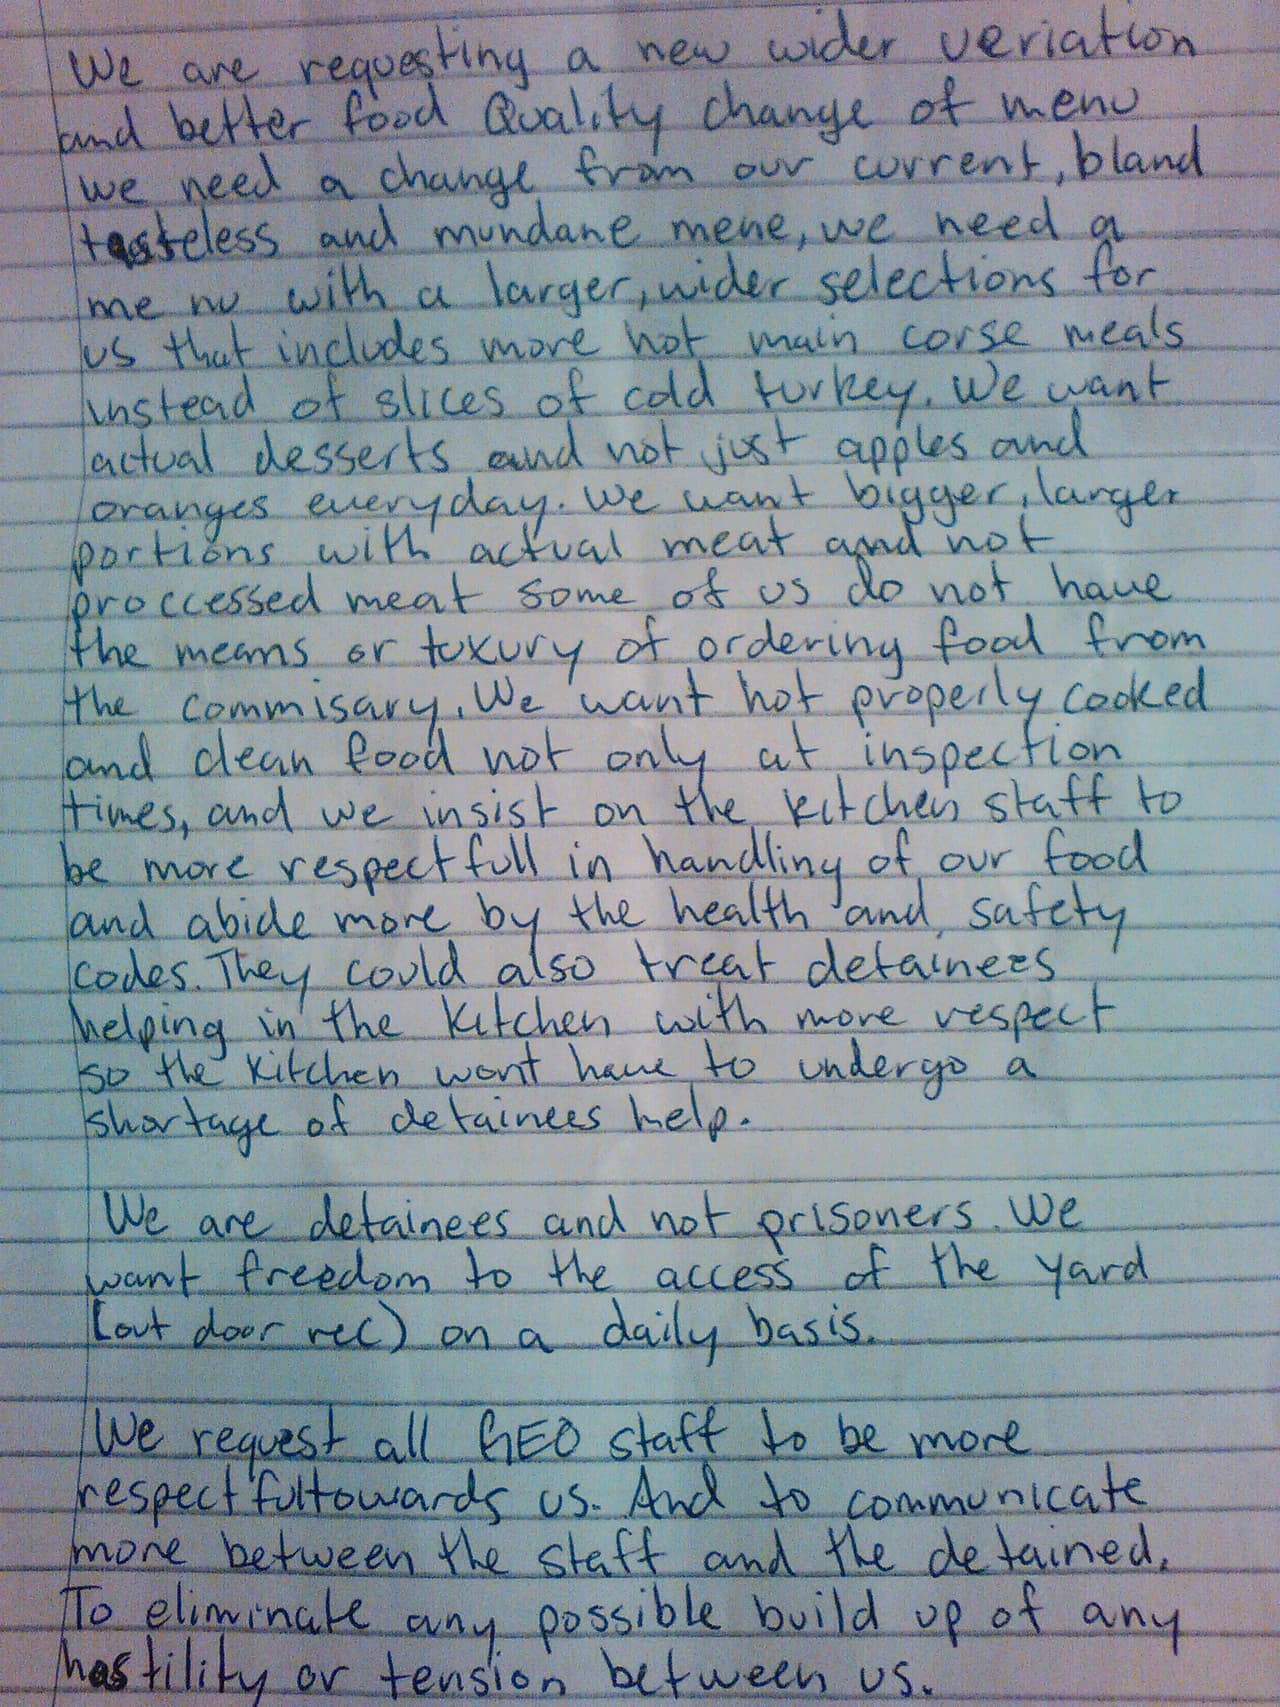 We are requesting a new wider veriation
and better food Quality change of menu
we need a change from our current, bland
tasteless and mundane mene, we need a
me nu with a larger, wider selections for
us that includes more hot main corse meals
instead of slices of cold turkey. We want
actual desserts and not just apples and
oranges everyday. We want bigger, larger
portions with actual meat and not
proccessed meat some of us do not have
the means or luxury of ordering food from
the commisary. We want hot properly cooked
and clean food not only at inspection
times, and we insist on the kitchen staff to
be more respectfull in handling of our food
and abide more by the health and safety
codes. They could also treat detainees
helping in the kitchen with more respect
so the kitchen wont have to undergo a
shortage of detainees help.
We are detainees and not prisoners. We
want freedom to the access of the yard
(out door rec) on a daily basis.
We request all GEO staff to be more
respectful towards us. And to communicate
more between the staff and the detained.
To eliminate any possible build up of any
hostility or tension between us.